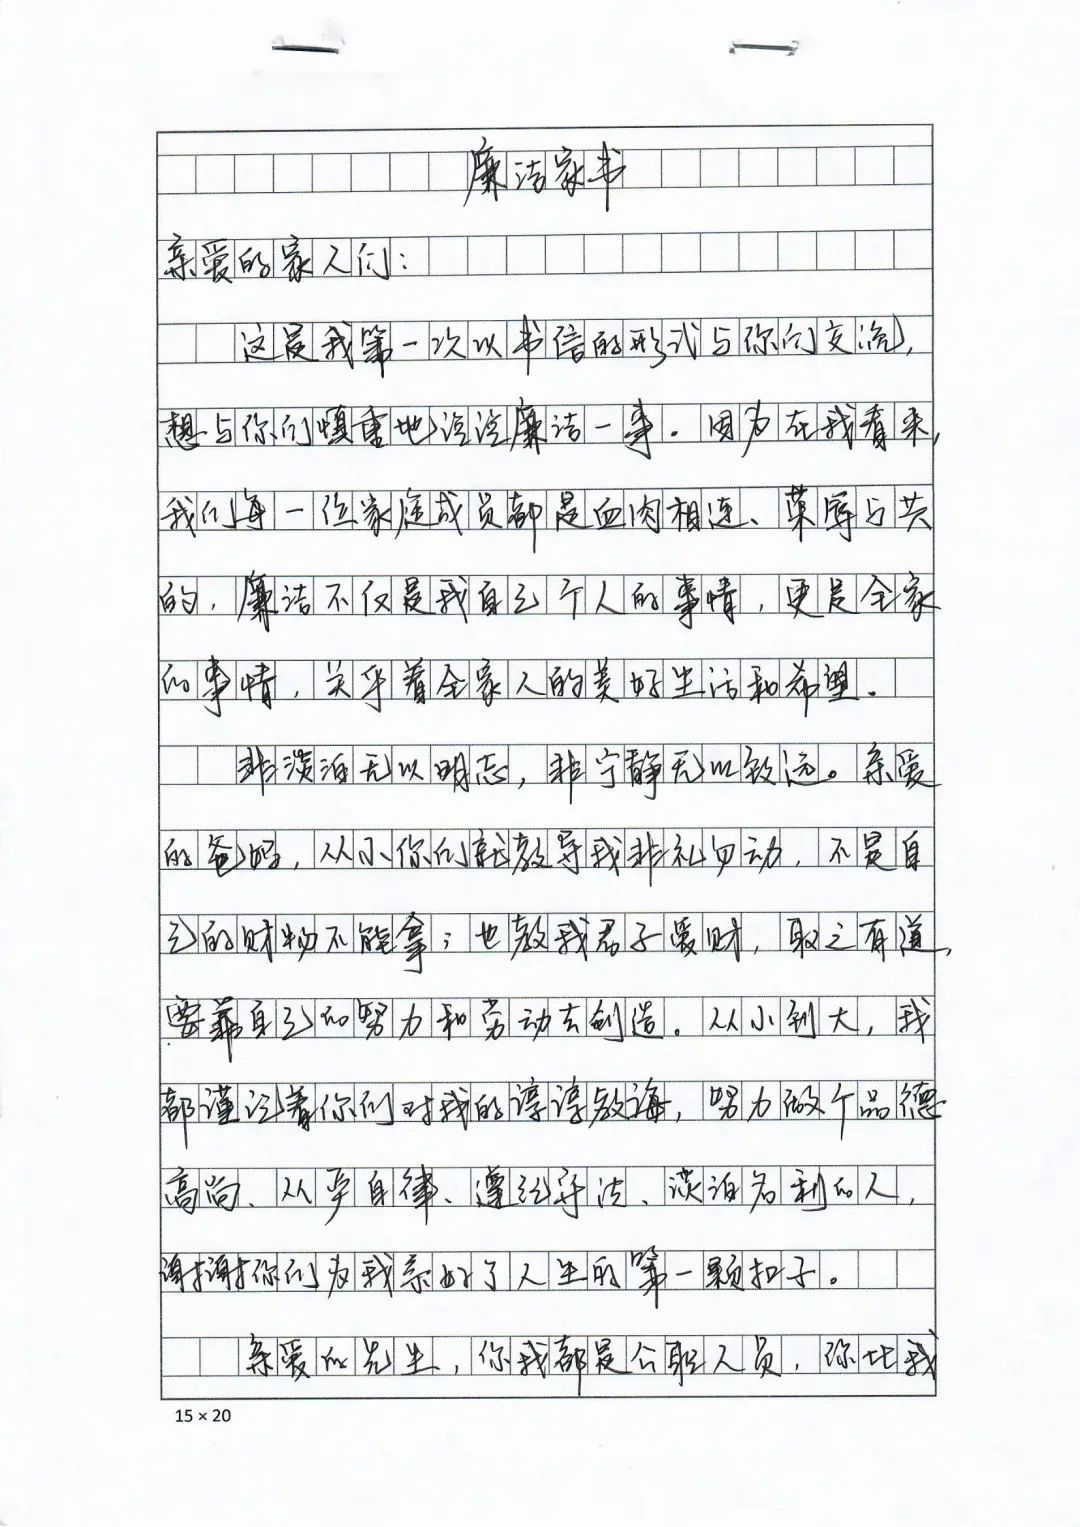 廉洁家书
亲爱的家人们：
这是我第一次以书信的形式与你们交流，
想与你们慎重地谈谈廉洁一事。因为在我看来，
我们每一位家庭成员都是血肉相连、荣辱与共
的，廉洁不仅是我自己个人的事情，更是全家
的事情，关乎着全家人的美好生活和希望。
非淡泊无以明志，非宁静无以致远。亲爱
的爸妈，从小你们就教导我非礼勿动，不是自
己的财物不能拿；也教我君子爱财，取之有道，
要靠自己的努力和劳动去创造。从小到大，我
都谨记着你们对我的谆谆教诲，努力做个品德
高尚、从严自律、遵纪守法、淡泊名利的人，
谢谢你们为我系好了人生的第一颗扣子。
亲爱的先生，你我都是公职人员，你比我
15×20